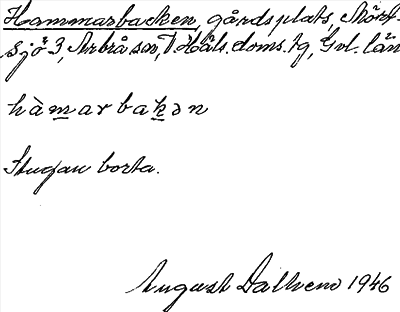 Hammarbacken, gårdsplats, Mört-
sjö 3, Arbrå sn, N Häls. doms. tg, Gvl. län
hàmarbakən
Stugan borta.
August Dallvem 1946